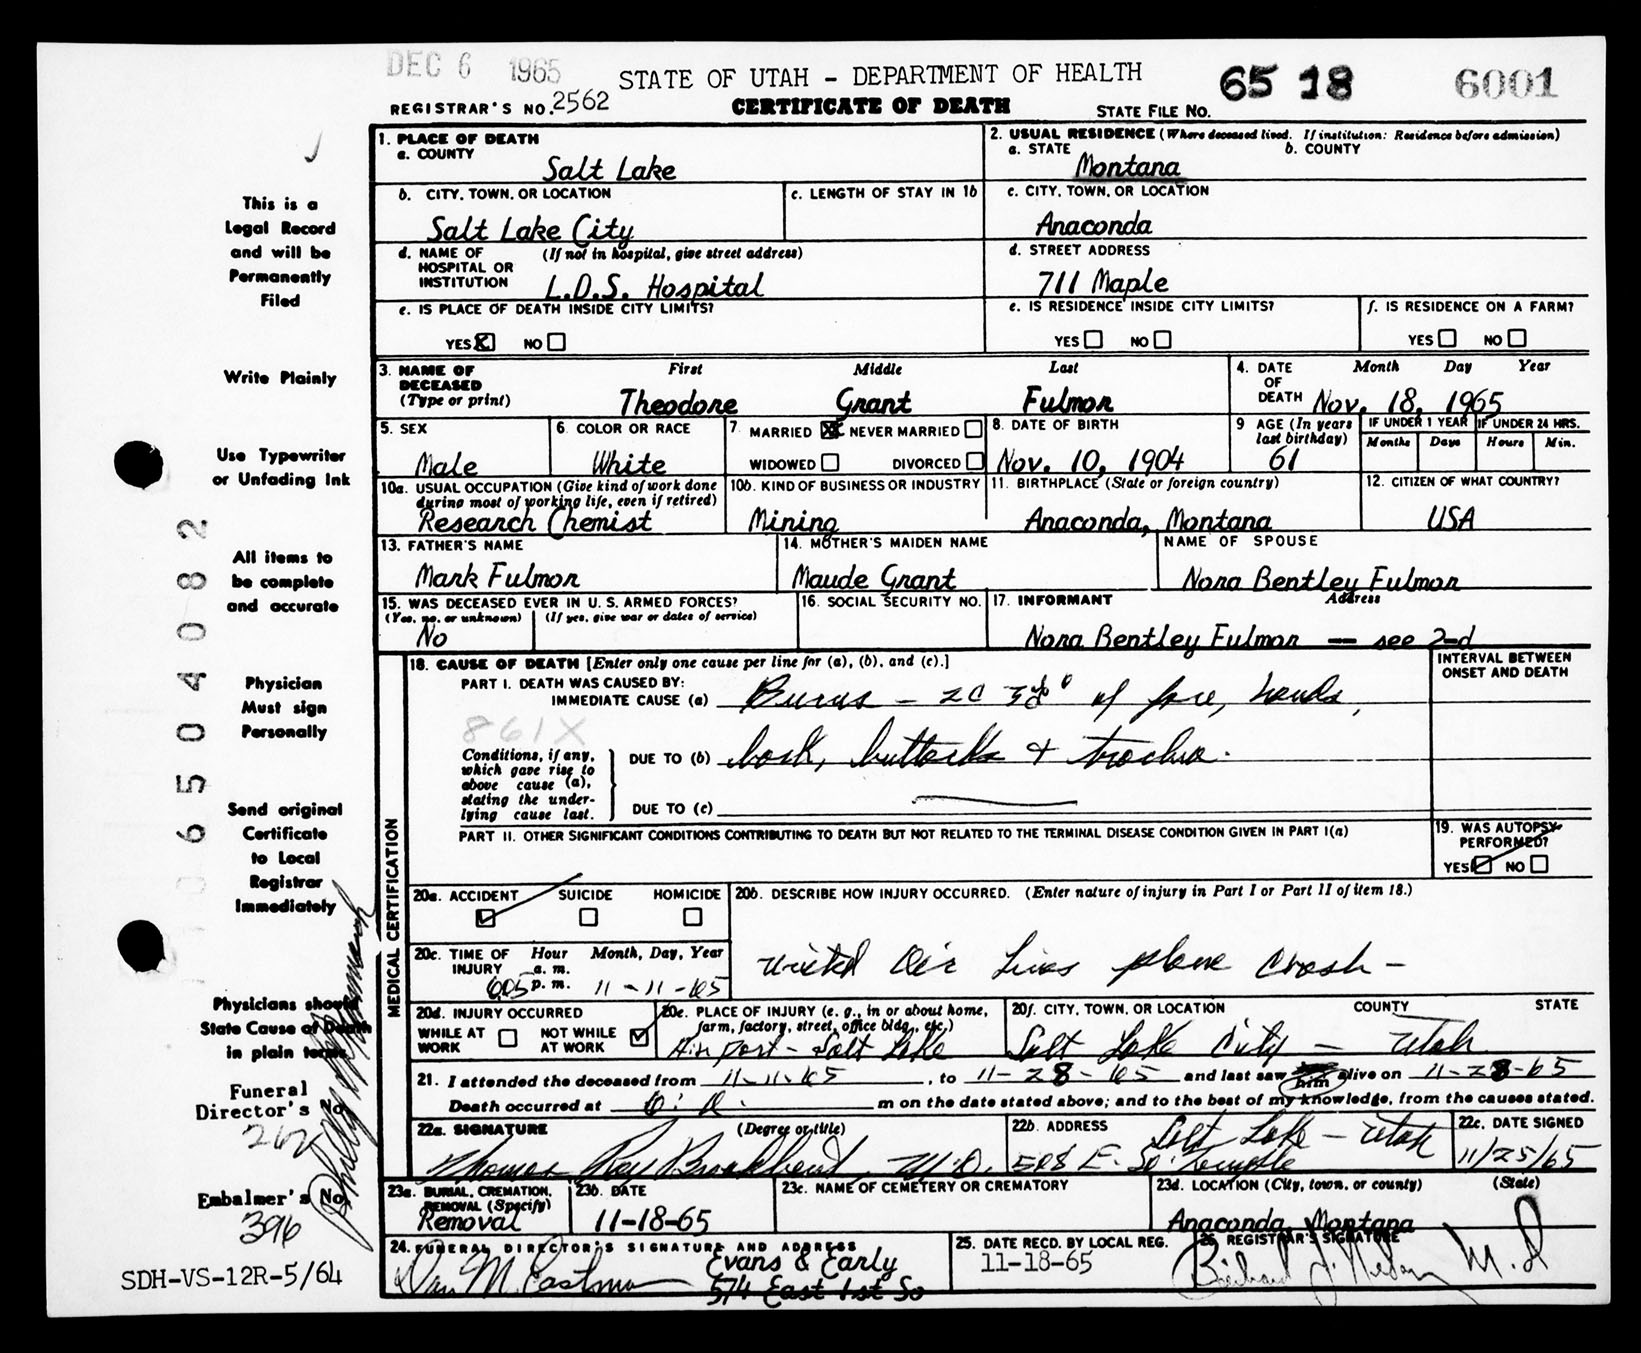 DEC 6 1965 STATE OF UTAH - DEPARTMENT OF HEALTH 65 18 6001
REGISTRAR'S NO. 2562 CERTIFICATE OF DEATH STATE FILE NO.
This is a
Legal Record
and will be
Permanently
Filed
Write Plainly
Use Typewriter
or Unfading Ink
All items to
be complete
and accurate
Physician
Must sign
Personally
Send original
Certificate
to Local
Registrar
Immediately
Physicians should
State Cause of Death
in plain terms
Funeral
Director's No.
262
Embalmer's No.
396
SDH-VS-12R-5/64
06504082
1. PLACE OF DEATH
a. COUNTY
Salt Lake
2. USUAL RESIDENCE (Where deceased lived. If institution: Residence before admission)
a. STATE b. COUNTY
Montana
b. CITY, TOWN, OR LOCATION
Salt Lake City
c. LENGTH OF STAY IN 1b
c. CITY, TOWN, OR LOCATION
Anaconda
d. NAME OF HOSPITAL OR INSTITUTION (If not in hospital, give street address)
L.D.S. Hospital
d. STREET ADDRESS
711 Maple
e. IS PLACE OF DEATH INSIDE CITY LIMITS?
YES X NO
e. IS RESIDENCE INSIDE CITY LIMITS?
YES NO
f. IS RESIDENCE ON A FARM?
YES NO
3. NAME OF DECEASED (Type or print) First Middle Last
Theodore Grant Fulmor
4. DATE OF DEATH Month Day Year
Nov. 18, 1965
5. SEX
Male
6. COLOR OR RACE
White
7 MARRIED X NEVER MARRIED
WIDOWED DIVORCED
8. DATE OF BIRTH
Nov. 10, 1904
9 AGE (In years last birthday)
61
IF UNDER 1 YEAR IF UNDER 24 HRS.
Months Days Hours Min.
10a. USUAL OCCUPATION (Give kind of work done during most of working life, even if retired)
Research Chemist
10b. KIND OF BUSINESS OR INDUSTRY
Mining
11. BIRTHPLACE (State or foreign country)
Anaconda, Montana
12. CITIZEN OF WHAT COUNTRY?
USA
13. FATHER'S NAME
Mark Fulmor
14. MOTHER'S MAIDEN NAME
Maude Grant
NAME OF SPOUSE
Nora Bentley Fulmor
15. WAS DECEASED EVER IN U. S. ARMED FORCES?
(Yes, no, or unknown) (If yes, give war or dates of service)
No
16. SOCIAL SECURITY NO.
17. INFORMANT Address
Nora Bentley Fulmor — see 2-d
MEDICAL CERTIFICATION
18. CAUSE OF DEATH [Enter only one cause per line for (a), (b), and (c).]
INTERVAL BETWEEN ONSET AND DEATH
PART I. DEATH WAS CAUSED BY:
IMMEDIATE CAUSE (a) Burns - of face, hands,
861X
Conditions, if any,
which gave rise to
above cause (a),
stating the under-
lying cause last.
DUE TO (b) back, buttocks + trachea.
DUE TO (c)
PART II. OTHER SIGNIFICANT CONDITIONS CONTRIBUTING TO DEATH BUT NOT RELATED TO THE TERMINAL DISEASE CONDITION GIVEN IN PART I(a)
19. WAS AUTOPSY PERFORMED?
YES NO
20a. ACCIDENT SUICIDE HOMICIDE
20b. DESCRIBE HOW INJURY OCCURRED. (Enter nature of injury in Part I or Part II of item 18.)
United Air Lines plane crash -
20c. TIME OF INJURY Hour a. m. p. m. Month, Day, Year
605 11-11-65
20d. INJURY OCCURRED
WHILE AT WORK NOT WHILE AT WORK
20e. PLACE OF INJURY (e. g., in or about home, farm, factory, street, office bldg., etc.)
Air port - Salt Lake
20f. CITY, TOWN, OR LOCATION COUNTY STATE
Salt Lake City - Utah
21. I attended the deceased from 11-11-65, to 11-28-65 and last saw him alive on 11-28-65
Death occurred at m on the date stated above; and to the best of my knowledge, from the causes stated.
22a. SIGNATURE (Degree or title)
Thomas Ray Broadbent, M.D.
22b. ADDRESS
Salt Lake - Utah
508 E. So. Temple
22c. DATE SIGNED
11/25/65
23a. BURIAL, CREMATION, REMOVAL (Specify)
Removal
23b. DATE
11-18-65
23c. NAME OF CEMETERY OR CREMATORY
23d. LOCATION (City, town, or county) (State)
Anaconda, Montana
24. FUNERAL DIRECTOR'S SIGNATURE AND ADDRESS
Dan M. Eastman Evans & Early
574 East 1st So
25. DATE RECD. BY LOCAL REG.
11-18-65
26. REGISTRAR'S SIGNATURE
M.D